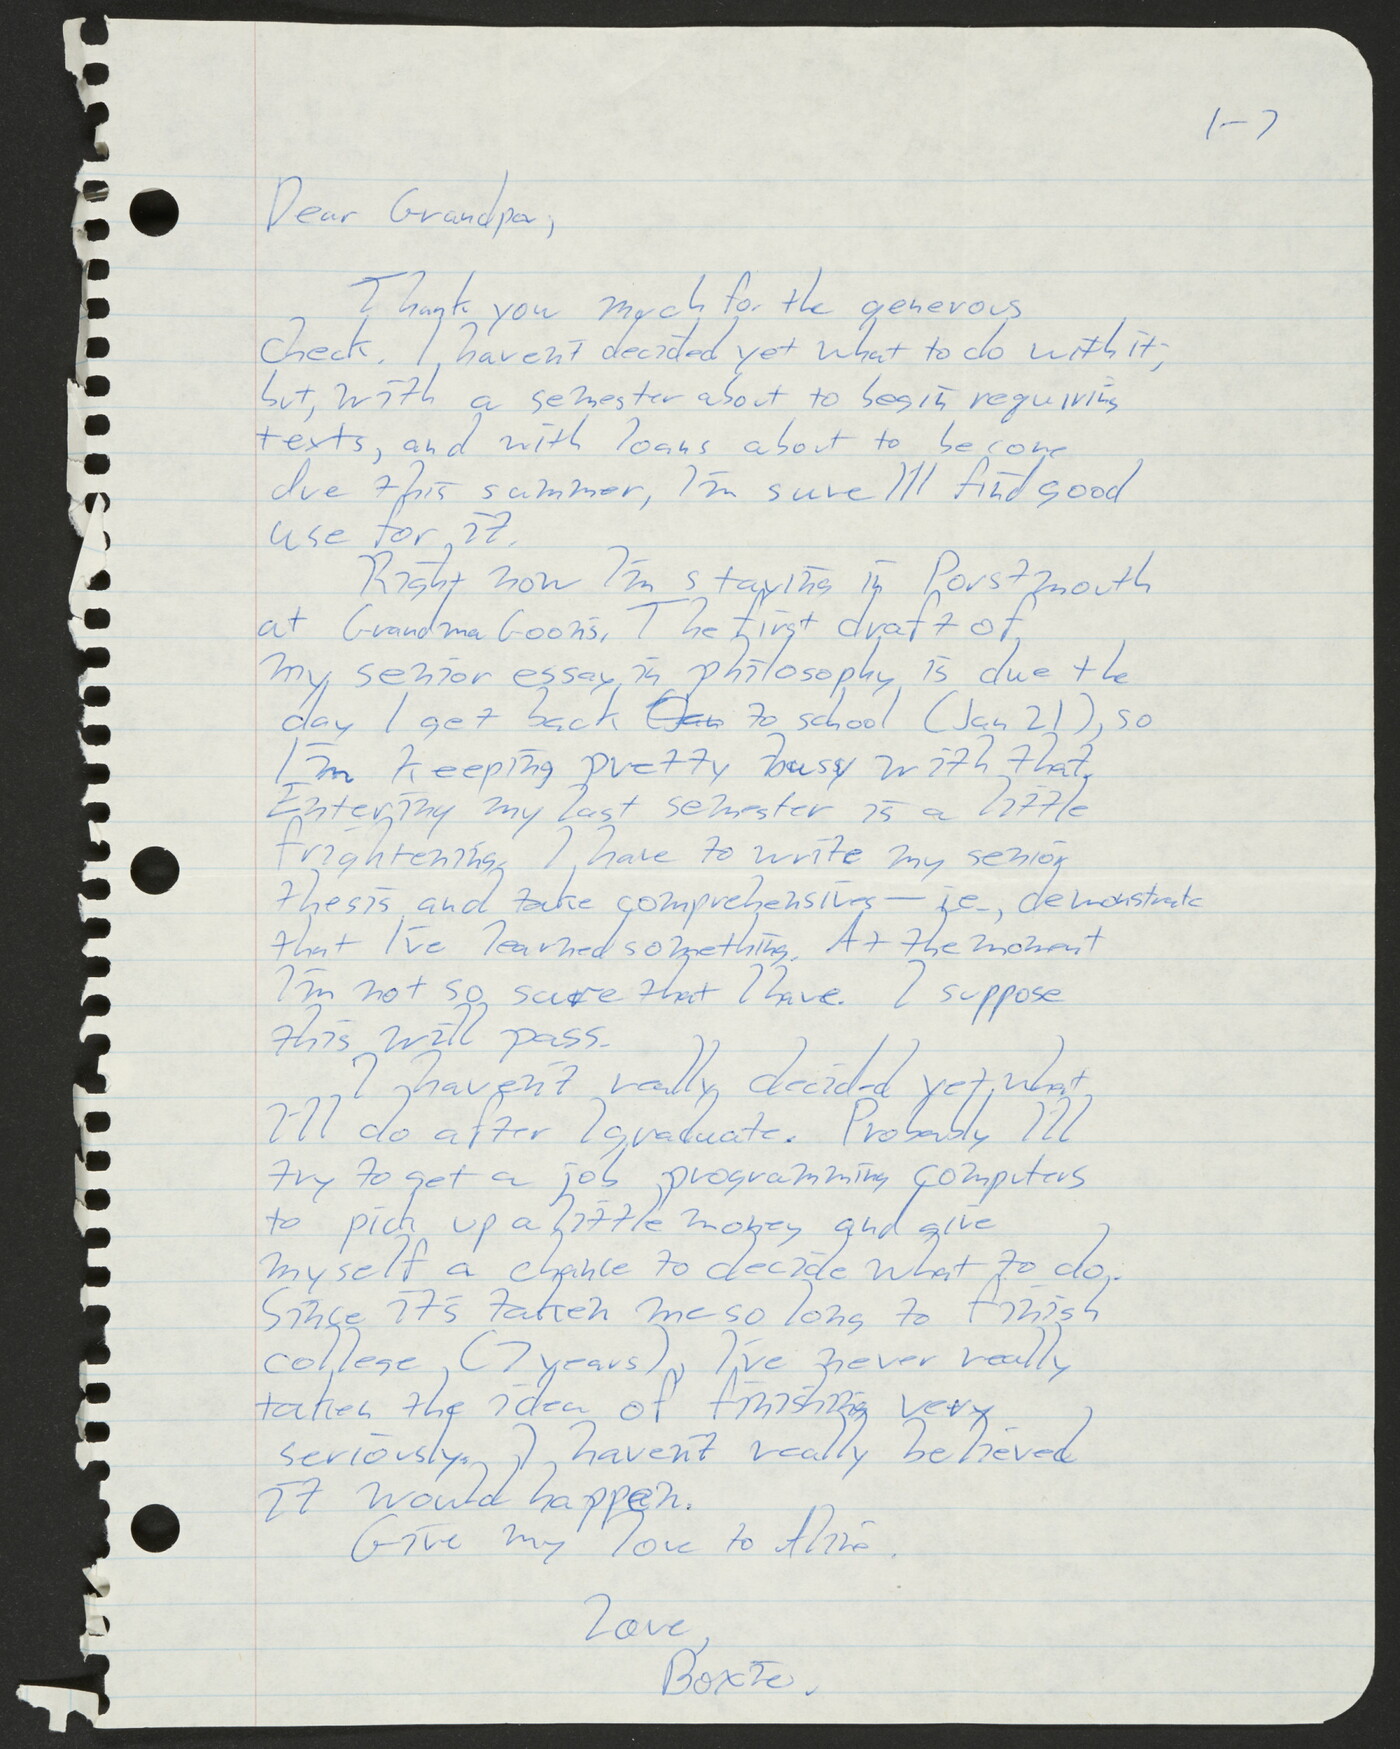 1-7
Dear Grandpa,
Thank you much for the generous
check. I haven't decided yet what to do with it,
but, with a semester about to begin requiring
texts, and with loans about to become
due this summer, I'm sure I'll find good
use for it.
Right now I'm staying in Porstmouth
at Grandma Goon's. The first draft of
my senior essay in philosophy is due the
day I get back (Jan to school (Jan 21), so
I'm keeping pretty busy with that.
Entering my last semester is a little
frightening. I have to write my senior
thesis and take comprehensives — ie., demonstrate
that I've learned something. At the moment
I'm not so sure that I have. I suppose
this will pass.
I haven't really decided yet what
I'll do after I graduate. Probably I'll
try to get a job programming computers
to pick up a little money and give
myself a chance to decide what to do.
Since it's taken me so long to finish
college (7 years), I've never really
taken the idea of finishing very
seriously. I haven't really believed
it would happen.
Give my love to
Love,